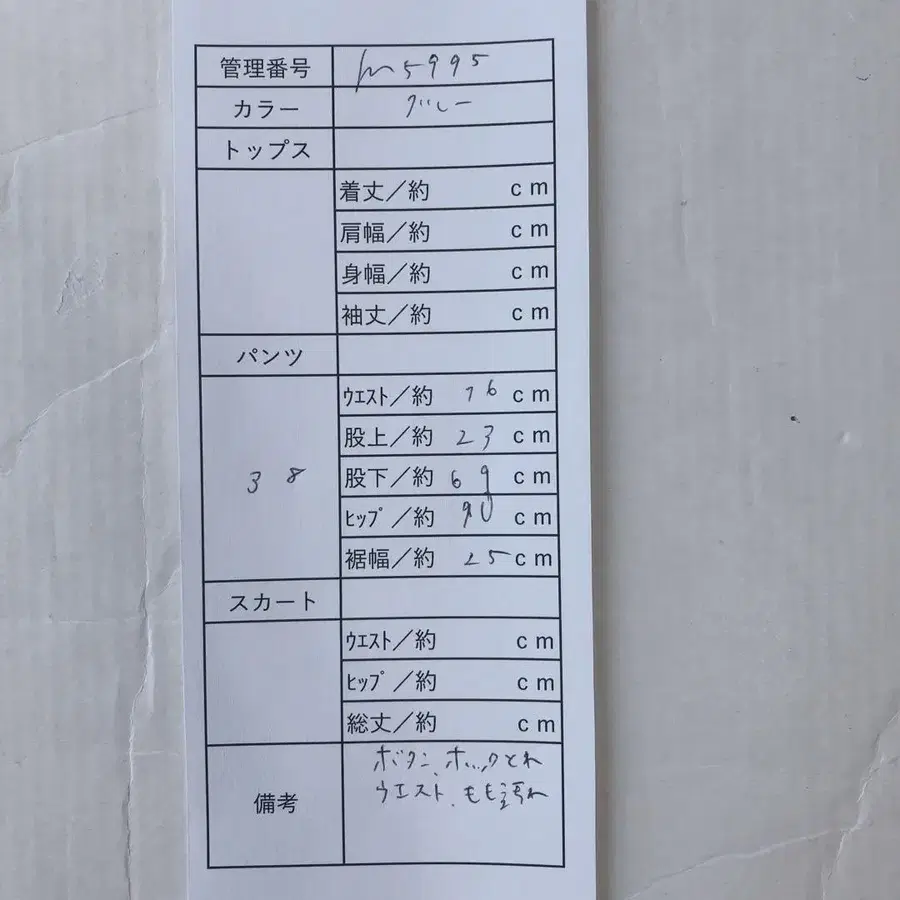 管理番号 m5995
カラー グレー
トップス
着丈／約 cm
肩幅／約 cm
身幅／約 cm
袖丈／約 cm
パンツ
38
ウエスト／約 76 cm
股上／約 23 cm
股下／約 69 cm
ヒップ／約 90 cm
裾幅／約 25 cm
スカート
ウエスト／約 cm
ヒップ／約 cm
総丈／約 cm
備考
ボタン、ホックとれ
ウエスト、もも汚れ